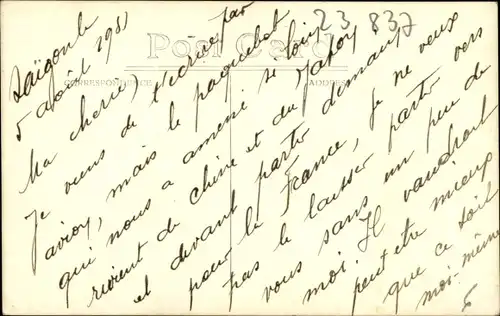 23 837
POST CARD
CORRESPONDENCE
ADDRESS
Saïgon le
5 août 1931
Ma cherie,
Je viens de t'écrire par
avion, mais le paquebot
qui nous a amené si loin
revient de Chine et du Japon
et devant partir demain
pour la France, je ne veux
pas le laisser partir vers
vous sans un peu de
moi. Il vaudrait
peut être mieux
que ce soit
moi-même